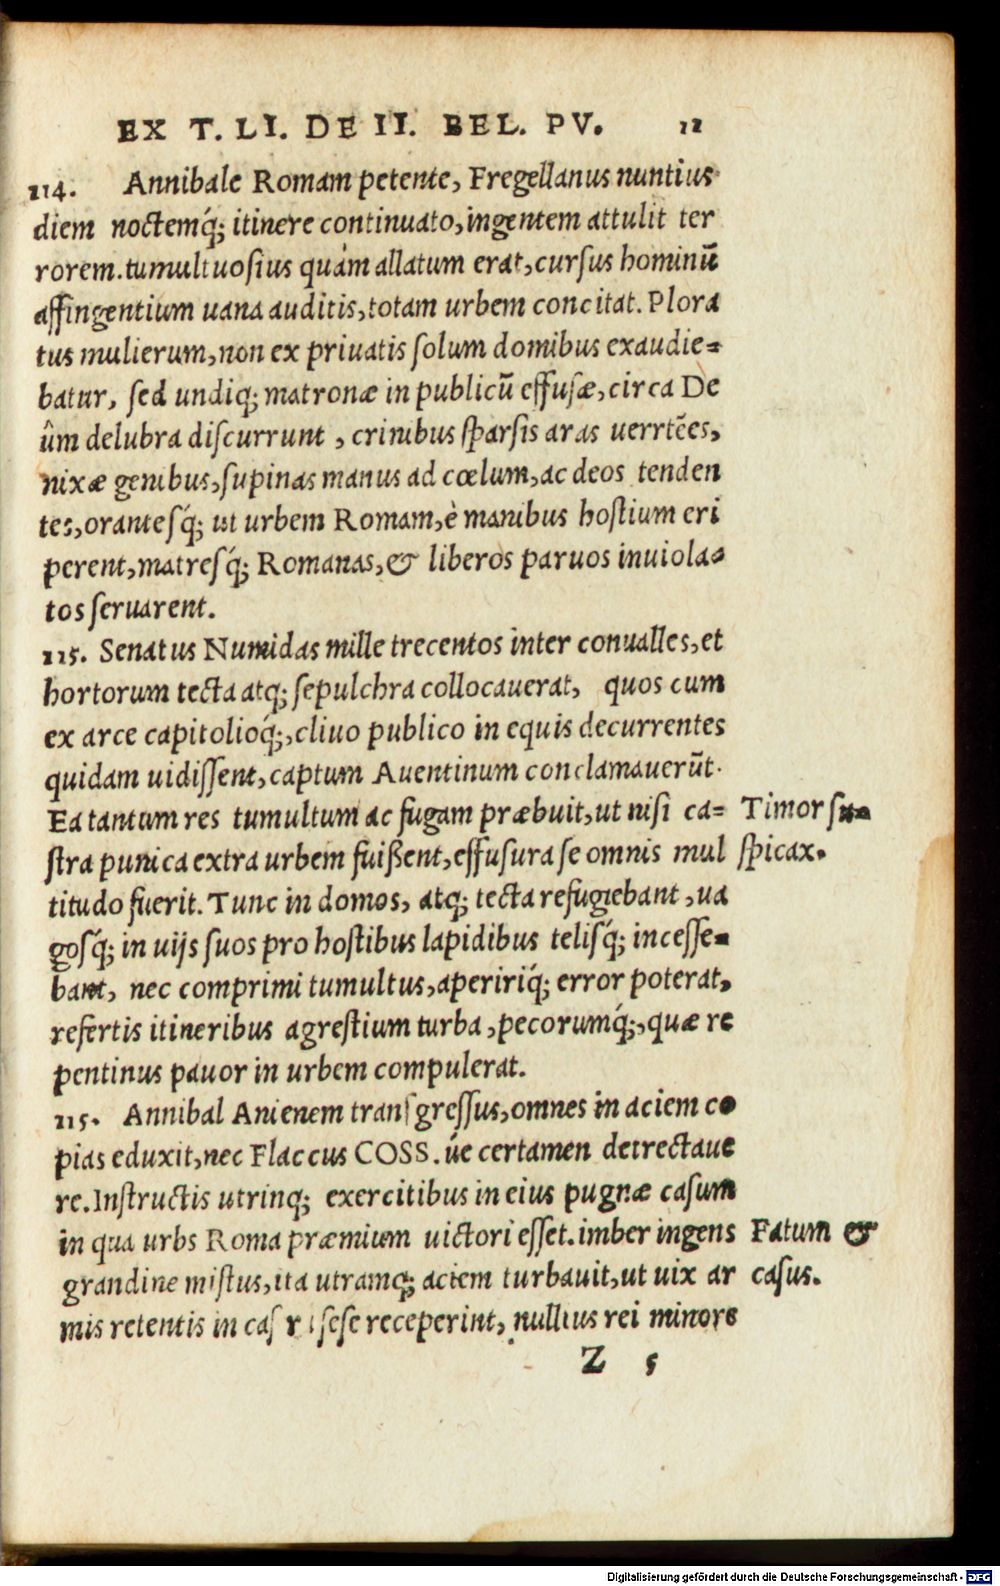 EX T. LI. DE II. BEL. PV. 12
114. Annibale Romam petente, Fregellanus nuntius
diem noctemq́; itinere continuato, ingentem attulit ter
rorem. tumultuosius quàm allatum erat, cursus hominū
affingentium uana auditis, totam urbem concitat. Plora
tus mulierum, non ex priuatis solum domibus exaudie=
batur, sed undiq; matronæ in publicū effusæ, circa De
ûm delubra discurrunt, crinibus sparsis aras uerrtēes,
nixæ genibus, supinas manus ad cœlum, ac deos tenden
tes, orantesq́; ut urbem Romam, è manibus hostium eri
perent, matresq́; Romanas, & liberos paruos inuiola=
tos seruarent.
115. Senatus Numidas mille trecentos inter conualles, et
hortorum tecta atq; sepulchra collocauerat, quos cum
ex arce capitolioq́;, cliuo publico in equis decurrentes
quidam uidissent, captum Auentinum conclamauerūt.
Ea tantum res tumultum ac fugam præbuit, ut nisi ca= Timor su=
stra punica extra urbem fuißent, effusura se omnis mul spicax.
titudo fuerit. Tunc in domos, atq; tecta refugiebant, ua
gosq́; in uijs suos pro hostibus lapidibus telisq́; incesse=
bant, nec comprimi tumultus, apeririq́; error poterat,
refertis itineribus agrestium turba, pecorumq́;, quæ re
pentinus pauor in urbem compulerat.
115. Annibal Anienem transgressus, omnes in aciem co
pias eduxit, nec Flaccus COSS. úe certamen detrectaue
re. Instructis utrinq; exercitibus in eius pugnæ casum
in qua urbs Roma præmium uictori esset. imber ingens Fatum &
grandine mistus, ita utramq; aciem turbauit, ut uix ar casus.
mis retentis in cas r i sese receperint, nullius rei minore
Z 5
Digitalisierung gefördert durch die Deutsche Forschungsgemeinschaft - DFG